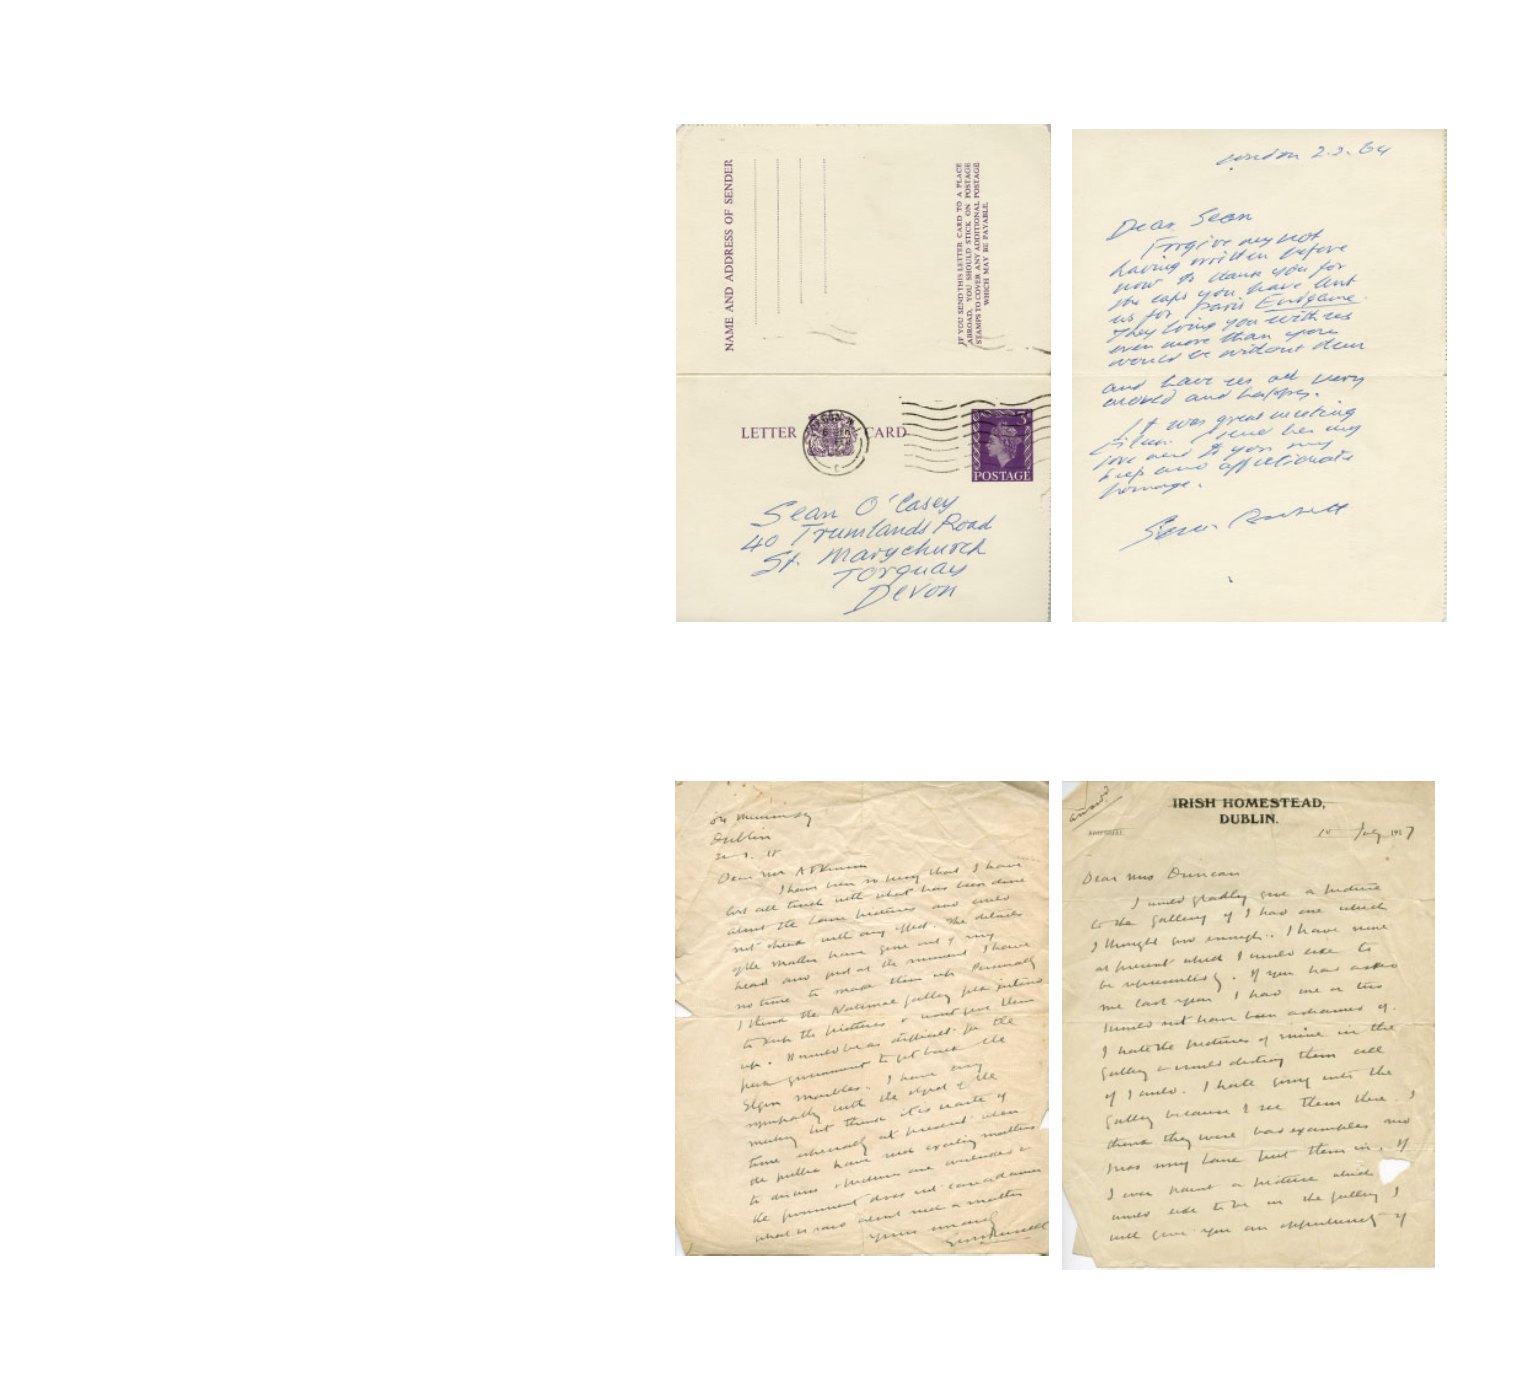 NAME AND ADDRESS OF SENDER
IF YOU SEND THIS LETTER CARD TO A PLACE
ABROAD, YOU SHOULD STICK ON POSTAGE
STAMPS TO COVER ANY ADDITIONAL POSTAGE
WHICH MAY BE PAYABLE.
LETTER CARD
POSTAGE
Sean O'Casey
40 Trumlands Road
St. Marychurch
Torquay
Devon
London 2.2.64
Dear Sean
Forgive my not
having written before
now to thank you for
the caps you have lent
us for Paris Endgame.
They bring you with us
even more than you
would be without them
and have us all very
moved and happy.
It was great meeting
I send her my
love and to you my
deep and affectionate
homage.
Dublin
Dear Mr Atkinson
I have been so busy that I have
lost all touch with what has been done
about the Lane pictures and could
not speak with any effect. The details
of the matter have gone out of my
head and just at the moment I have
no time to make them up. Personally
I think the National Gallery folk intend
to keep the pictures & wont give them
up. It would be as difficult for the
government to get back the
Elgin Marbles. I have every
sympathy with the object of the
meeting but think it is waste of
time especially at present when
the public have more exciting matters
to discuss & pictures are
the government does not care a damn
what is said about such a matter
Yours sincerely
Geo Russell
IRISH HOMESTEAD,
DUBLIN.
July 1917
Dear Mrs Duncan
I would gladly give a picture
to the gallery if I had one which
I thought good enough. I have none
at present which I would like to
be represented by. If you had asked
me last year I had one or two
I would not have been ashamed of.
I hate the pictures of mine in the
gallery & would destroy them all
if I could. I hate going into the
gallery because I see them there. I
think they were bad examples and
Lane put them in. If
I ever paint a picture which I
would like to be in the gallery I
will give you an opportunity of